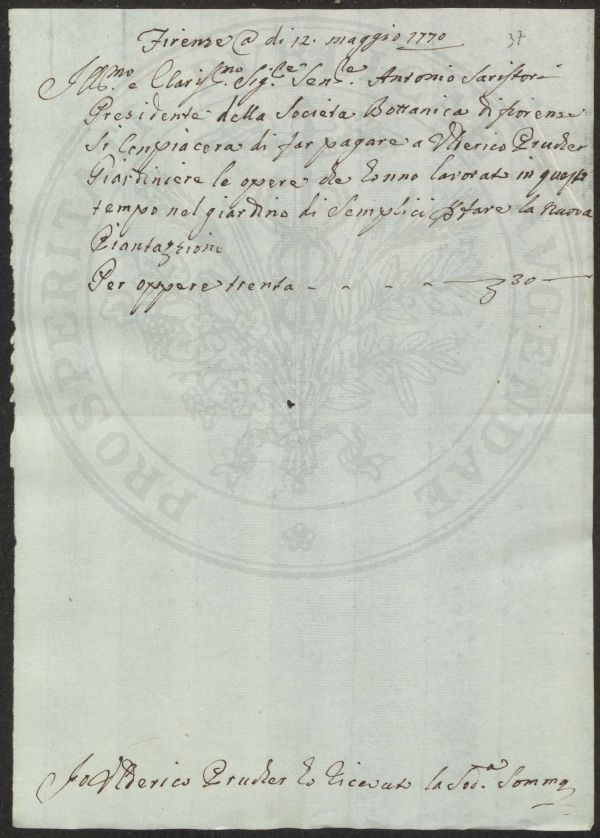 Firenze @ di 12. maggio 1770
37
Ill.mo e Claris.mo Sig.re Sen.re Antonio Saristori
Presidente della Società Bottanica di fiorenze
Si Conpiacera di far pagare a Vlderico Prucher
Giardiniere le opere che honno lavorato in questo
tempo nel giardino di Semplici p fare la nuova
Piantazzione
Per oppere trenta - - - - 30 -
Io Vlderico Prucher ho Riceuto la Sod.a Somma
PROSPERITATI AUGENDAE